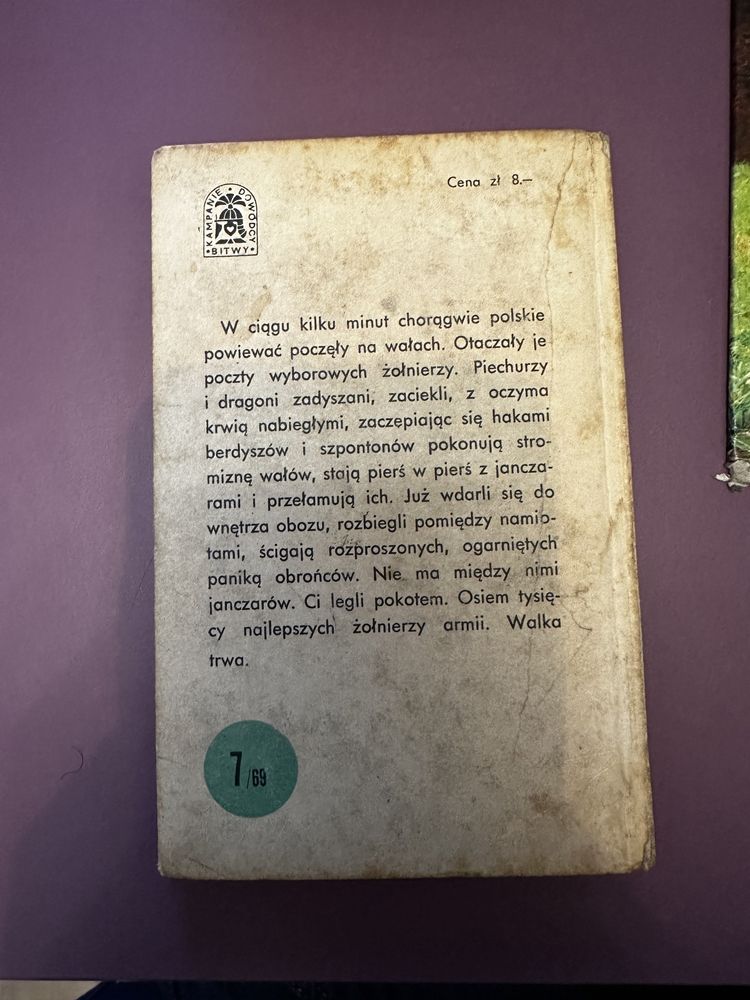 KAMPANIE • DOWÓDCY
• BITWY •
Cena zł 8.—
W ciągu kilku minut chorągwie polskie
powiewać poczęły na wałach. Otaczały je
poczty wyborowych żołnierzy. Piechurzy
i dragoni zadyszani, zaciekli, z oczyma
krwią nabiegłymi, zaczepiając się hakami
berdyszów i szpontonów pokonują stro-
miznę wałów, stają pierś w pierś z jancza-
rami i przełamują ich. Już wdarli się do
wnętrza obozu, rozbiegli pomiędzy namio-
tami, ścigają rozproszonych, ogarniętych
paniką obrońców. Nie ma między nimi
janczarów. Ci legli pokotem. Osiem tysię-
cy najlepszych żołnierzy armii. Walka
trwa.
7/69